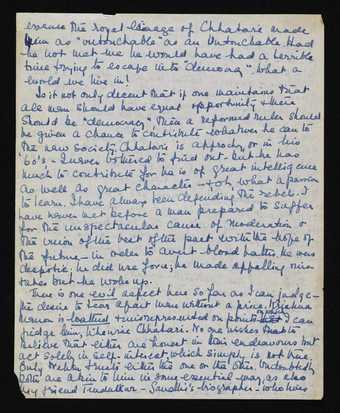 excuse the royal lineage of Chhatari made
him as "untouchable" as an Untouchable. Had
he not met me he would have had a terrible
time trying to escape into "democracy", what a
world we live in!
Is it not only decent that if one maintains that
all men should have equal opportunity & there
should be "democracy" then a reformed ruler should
be given a chance to contribute whatever he can to
the new society. Chhatari is approx. or in his
60's - I never bothered to find out. But he has
much to contribute for he is of great intelligence
as well as great character - & oh, what a passion
to learn. I have always been defending the rebel. I
have never met before a man prepared to suffer
for the unspectacular cause of moderation &
the union of the best of the past with the hope of
the future - in order to avert blood baths. He was
despotic, he did use force, he made appalling mis-
takes but he woke up.
There is one evil aspect here so far as I can judge -
the desire to tear apart men without a price. Krishna
Menon is loathed & misrepresented on points I can
judge him, likewise Chhatari. No one wishes to
believe that either are honest in their endeavours but
act solely in self-interest, which simply is not true.
Only Nehru trusts either the one or the other. Undoubtedly
both are akin to him in some essential way, as also
my friend Tendulkar - Gandhi's biographer - who lives